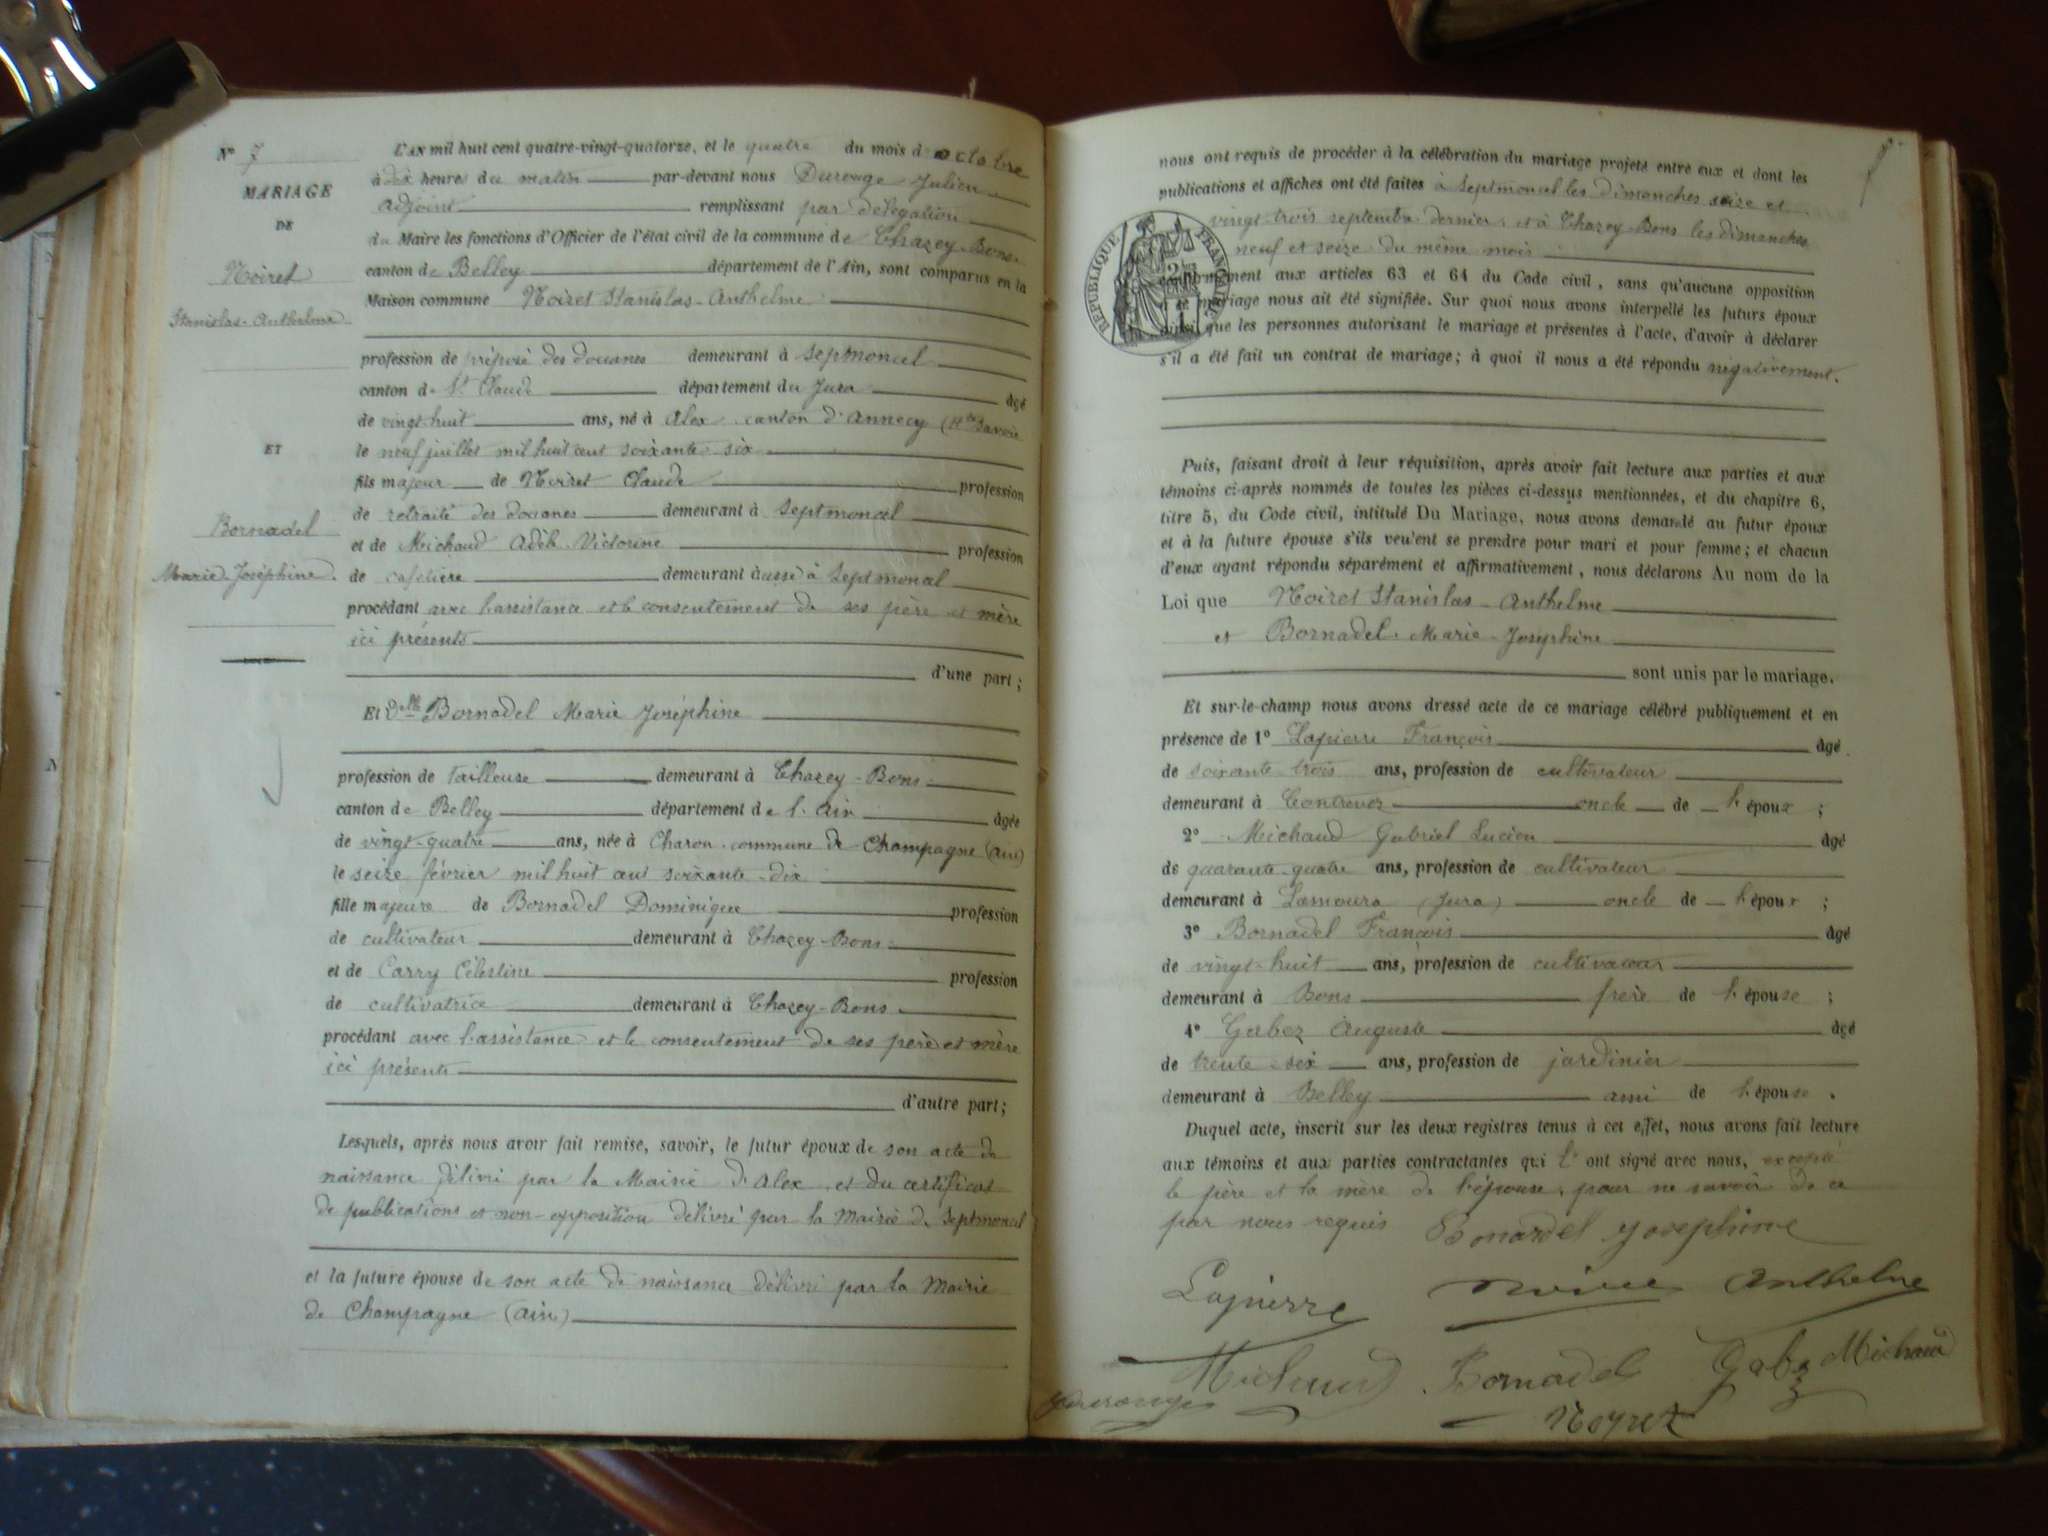 N° 7
MARIAGE
DE
Noiret
Stanislas-Anthelme
ET
Bornadel
Marie-Joséphine.
L'AN mil huit cent quatre-vingt-quatorze, et le quatre du mois d'octobre
à dix heures du matin par-devant nous Durouge Julien
adjoint remplissant par délégation
du Maire les fonctions d'Officier de l'état civil de la commune de Chazey-Bons
canton de Belley département de l'Ain, sont comparus en la
Maison commune Noiret Stanislas-Anthelme
profession de préposé des douanes demeurant à Septmoncel
canton de St Claude département du Jura âgé
de vingt-huit ans, né à Alex canton d'Annecy (Hte Savoie
le neuf juillet mil huit cent soixante-six
fils majeur de Noiret Claude profession
de retraité des douanes demeurant à Septmoncel
et de Michaud Adèle-Victorine profession
de cafetière demeurant aussi à Septmoncel
procédant avec l'assistance et le consentement de ses père et mère
ici présents
d'une part ;
Et Delle Bornadel Marie Joséphine
profession de tailleuse demeurant à Chazey-Bons
canton de Belley département de l'Ain âgée
de vingt-quatre ans, née à Charon commune de Champagne (Ain)
le seize février mil huit cent soixante-dix
fille majeure de Bornadel Dominique profession
de cultivateur demeurant à Chazey-Bons
et de Carry Célestine profession
de cultivatrice demeurant à Chazey-Bons
procédant avec l'assistance et le consentement de ses père et mère
ici présents
d'autre part ;
Lesquels, après nous avoir fait remise, savoir, le futur époux de son acte de
naissance délivré par la Mairie d'Alex et du certificat
de publications et non-opposition délivré par la Mairie de Septmoncel
et la future épouse de son acte de naissance délivré par la Mairie
de Champagne (Ain)
nous ont requis de procéder à la célébration du mariage projeté entre eux et dont les
publications et affiches ont été faites à Septmoncel les dimanches seize et
vingt-trois septembre dernier, et à Chazey-Bons les dimanches
neuf et seize du même mois
RÉPUBLIQUE FRANÇAISE
conformément aux articles 63 et 64 du Code civil, sans qu'aucune opposition
à ce mariage nous ait été signifiée. Sur quoi nous avons interpellé les futurs époux
ainsi que les personnes autorisant le mariage et présentes à l'acte, d'avoir à déclarer
s'il a été fait un contrat de mariage ; à quoi il nous a été répondu négativement.
Puis, faisant droit à leur réquisition, après avoir fait lecture aux parties et aux
témoins ci-après nommés de toutes les pièces ci-dessus mentionnées, et du chapitre 6,
titre 5, du Code civil, intitulé Du Mariage, nous avons demandé au futur époux
et à la future épouse s'ils veulent se prendre pour mari et pour femme ; et chacun
d'eux ayant répondu séparément et affirmativement, nous déclarons Au nom de la
Loi que Noiret Stanislas-Anthelme
et Bornadel Marie-Joséphine
sont unis par le mariage.
Et sur-le-champ nous avons dressé acte de ce mariage célébré publiquement et en
présence de 1° Lapierre François âgé
de soixante-trois ans, profession de cultivateur
demeurant à Contrevoz oncle de l'époux ;
2° Michaud Gabriel Lucien âgé
de quarante-quatre ans, profession de cultivateur
demeurant à Lamoura (Jura) oncle de l'époux ;
3° Bornadel François âgé
de vingt-huit ans, profession de cultivateur
demeurant à Bons frère de l'épouse ;
4° Gabez Auguste âgé
de trente-six ans, profession de jardinier
demeurant à Belley ami de l'épouse .
Duquel acte, inscrit sur les deux registres tenus à cet effet, nous avons fait lecture
aux témoins et aux parties contractantes qui l'ont signé avec nous, excepté
le père et la mère de l'épouse, pour ne savoir de ce
par nous requis Bonardel Joséphine
Lapierre Anthelme
Michaud Bornadel Gabez Michaud
Durouge Noyret